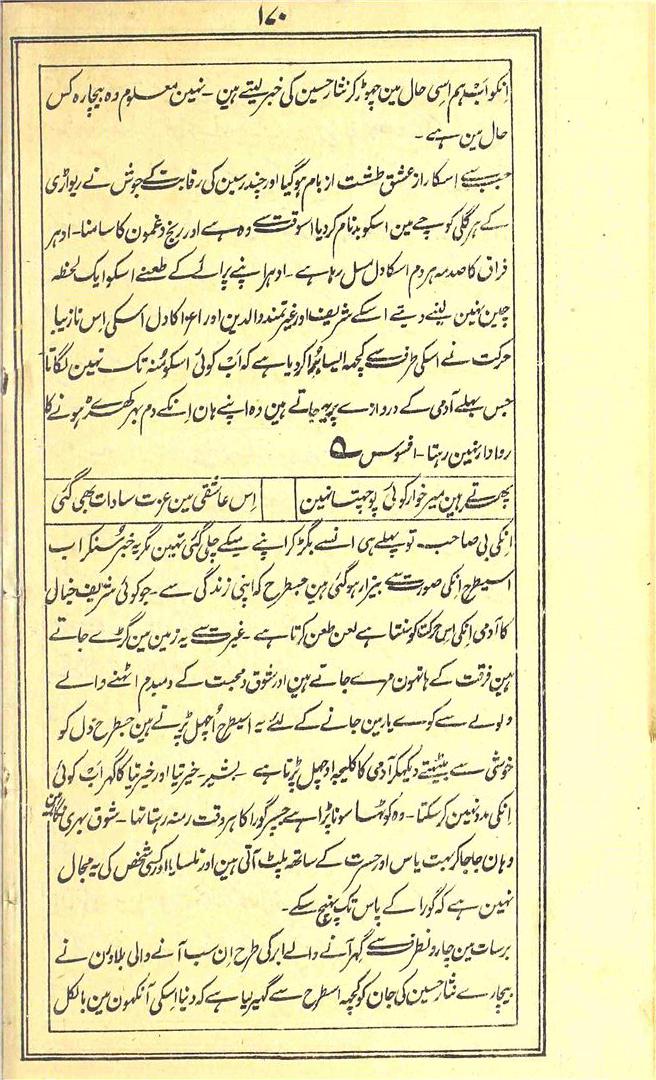 ۱۷۰
انکو اَب ہم اسی حال مین چھوڑ کر نثار حسین کی خبر لیتے ہین ۔ نہین معلوم وہ بیچارہ کس
حال مین ہے ۔
جب سے اسکا راز عشق طشت از بام ہو گیا اور چندر سین کی رقابت کے جوش نے ریواڑی
کے ہر گلی کوچے مین اسکو بدنام کر دیا اسوقت سے وہ ہے اور رنج و غمون کا سامنا ۔ ادہر
فراق کا صدمہ ہر دم اسکا دل مسل رہا ہے ۔ اودہر اپنے پرائے کے طعنے اسکو ایک لحظہ
چین نہین لینے دیتے اسکے شریف اور غیرتمند والدین اور اعزا کا دل اُسکی اِس نازیبا
حرکت نے اسکی طرف سے کچھہ ایسا بُرا کر دیا ہے کہ اَب کوئی اسکو مُنہ تک نہین لگاتا
جس پہلے آدمی کے دروازے پر یہ جاتے ہین وہ اپنے ہان اِنکے دم بہر کھڑے ہونے کا
روادار نہین رہتا ۔ افسوس ؎
پھرتے ہین میر خوار کوئی پوچھتا نہین اِس عاشقی مین عزت سادات بھی گئی
اِنکی بی صاحب تو پہلے ہی انسے بگڑ کر اپنے میکے چلی گئی تہین مگر یہ خبر سُنکر اب
اسیطرح انکی صورت سے بیزار ہو گئی ہین جسطرح کہ اپنی زندگی سے ۔ جو کوئی شریف خیال
کا آدمی اِنکی اس حرکت کو سنتا ہے لعن طعن کرتا ہے ۔ غیرت سے یہ زمین مین گڑے جاتے
ہین فرقت کے ہاتھون مرے جاتے ہین اور شوق و محبت کے دمبدم اٹہنے والے
ولولے سے کوے یار مین جانے کے لئے یہ اسیطرح اُچھل پڑتے ہین جسطرح دل کو
خوشی سے بیٹہتے دیکہکر آدمی کا کلیجہ اوچھل پڑتا ہے ۔ بشیر ۔ خیر تیا اور خیر تیا کا گھر اَب کوئی
اِنکی مدد نہین کر سکتا ۔ وہ کوٹہا سونا پڑا ہے جسپر گورا کا ہر وقت رمنہ رہتا تہا ۔ شوق بہری نگاہین
وہان جا جا کر بہت یاس اور حسرت کے ساتھہ پلٹ آتی ہین اور نلسایا اور کسی شخص کی یہ مجال
نہین ہے کہ گورا کے پاس تک پہنچ سکے ۔
برسات مین چارو نطرف سے گھر آنے والے ابر کی طرح اِن سب آنے والی بلاون نے
بیچارے نثار حسین کی جان کو کچھہ اسطرح سے گھیر لیا ہے کہ دنیا اسکی آنکھون مین بالکل